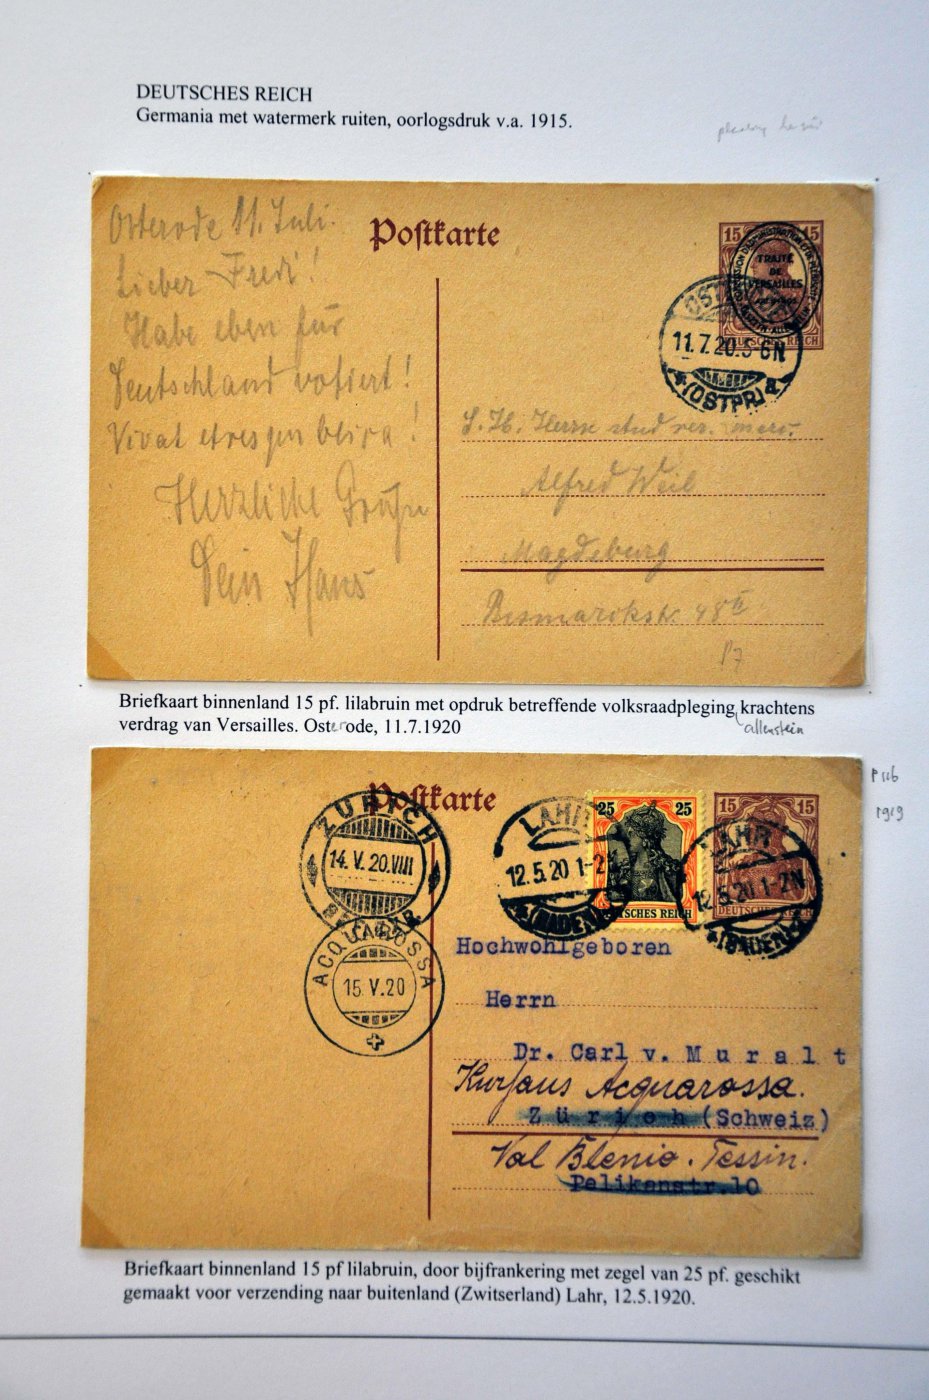 DEUTSCHES REICH
Germania met watermerk ruiten, oorlogsdruk v.a. 1915.
Osterode 11. Juli.
Lieber Fredi!
Habe eben für
Deutschland votiert!
Vivat
Herzliche Grüße
Dein Hans
Postkarte
15 15
TRAITÉ
DE
VERSAILLES
DEUTSCHES REICH
11.7.20.5-6N
(OSTPR) a
S. H. Herrn stud
Alfred Weil
Magdeburg
Bismarckstr. 48
P7
Briefkaart binnenland 15 pf. lilabruin met opdruk betreffende volksraadpleging krachtens
allenstein
verdrag van Versailles. Osterode, 11.7.1920
P 116
1919
Postkarte
ZÜRICH
14. V. 20. VIII
ACQUAROSSA
15. V. 20
LAHR
12.5.20 1-2N
(BADEN)
25 25
DEUTSCHES REICH
LAHR
12.5.20 1-2N
(BADEN)
15 15
DEUTSCHES REICH
Hochwohlgeboren
Herrn
Dr. Carl v. M u r a l t
Kurhaus Acquarossa.
Z ü r i c h (Schweiz)
Val Blenio. Tessin.
Pelikanstr.10
Briefkaart binnenland 15 pf lilabruin, door bijfrankering met zegel van 25 pf. geschikt
gemaakt voor verzending naar buitenland (Zwitserland) Lahr, 12.5.1920.